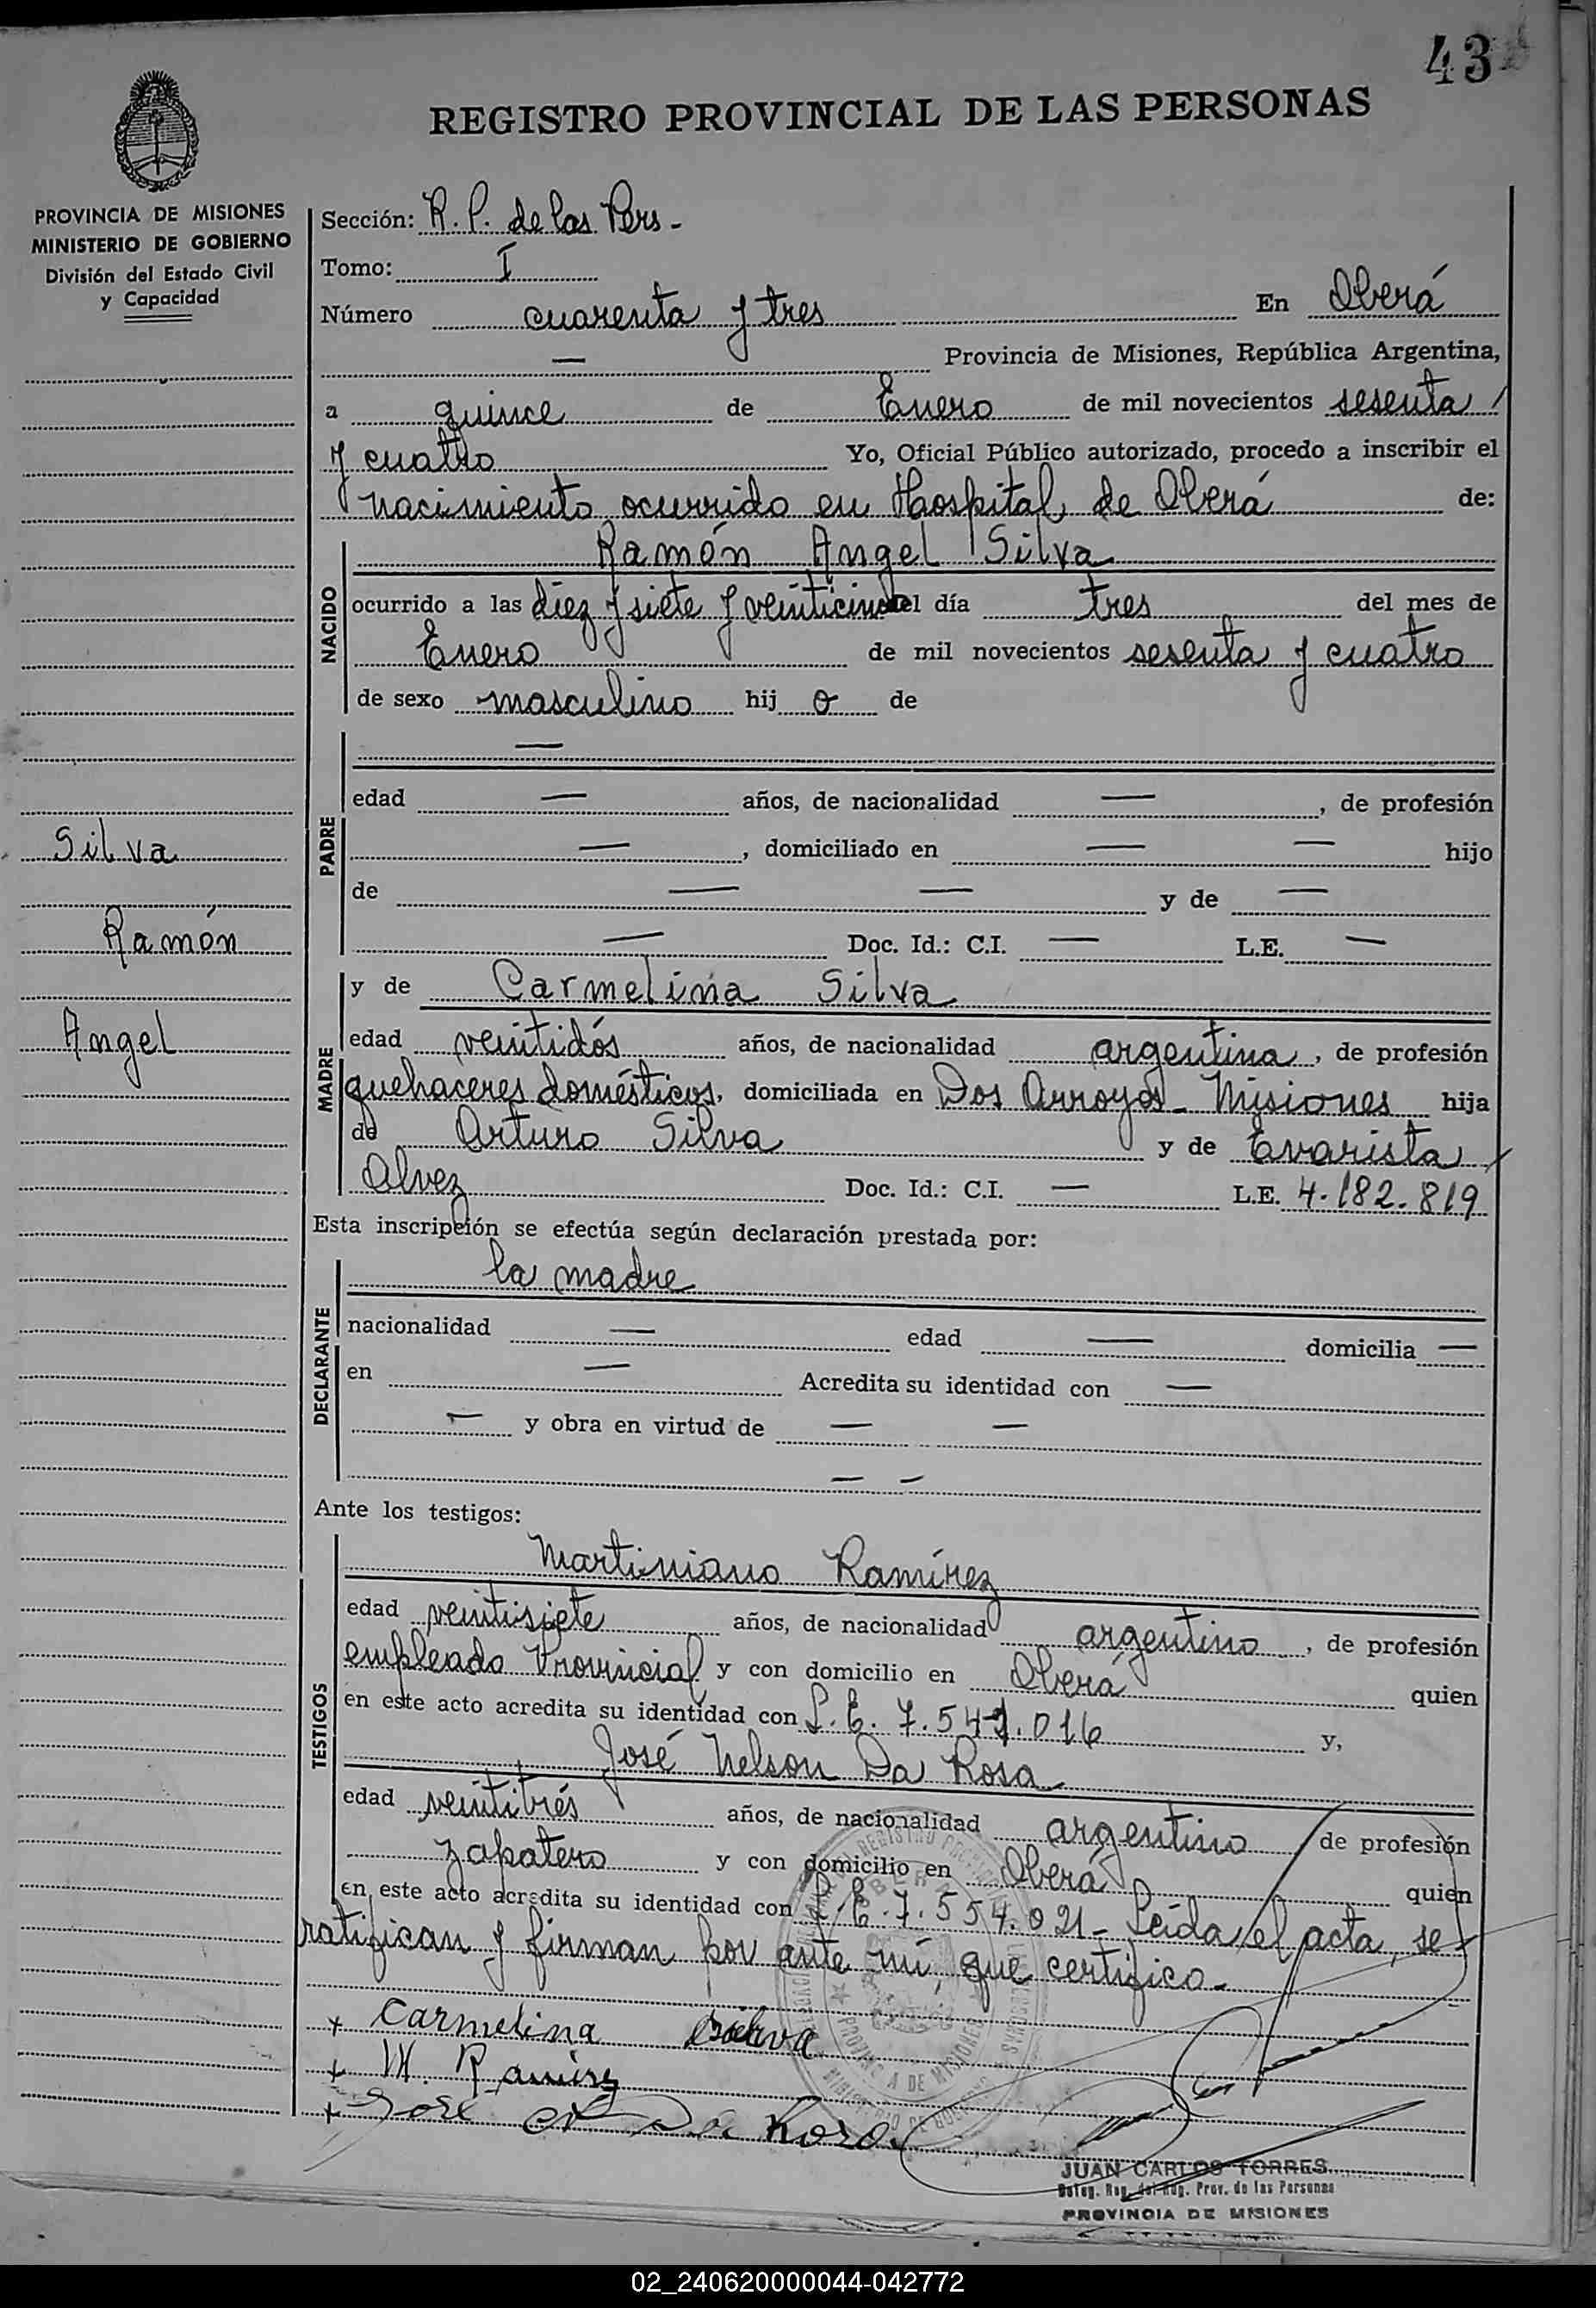 43
REGISTRO PROVINCIAL DE LAS PERSONAS
PROVINCIA DE MISIONES
MINISTERIO DE GOBIERNO
División del Estado Civil
y Capacidad
Silva
Ramón
Angel
Sección: R. P. de las Pers -
Tomo: I
Número cuarenta y tres En Oberá
— Provincia de Misiones, República Argentina,
a quince de Enero de mil novecientos sesenta /
y cuatro Yo, Oficial Público autorizado, procedo a inscribir el
nacimiento ocurrido en Hospital de Oberá de:
NACIDO
Ramón Angel Silva
ocurrido a las diez y siete y veinticinco del día tres del mes de
Enero de mil novecientos sesenta y cuatro
de sexo masculino hij o de
PADRE
—
edad — años, de nacionalidad —, de profesión
—, domiciliado en — — hijo
de — — y de —
— Doc. Id.: C.I. — L.E. —
MADRE
y de Carmelina Silva
edad veintidós años, de nacionalidad argentina, de profesión
quehaceres domésticos, domiciliada en Dos Arroyos - Misiones hija
de Arturo Silva y de Evarista /
Alvez Doc. Id.: C.I. — L.E. 4.182.819
Esta inscripción se efectúa según declaración prestada por:
DECLARANTE
la madre
nacionalidad — edad — domicilia —
en — Acredita su identidad con —
— y obra en virtud de — —
— —
Ante los testigos:
TESTIGOS
Martiniano Ramírez
edad veintisiete años, de nacionalidad argentino, de profesión
empleado Provincial y con domicilio en Oberá quien
en este acto acredita su identidad con L.E. 7.541.016 y,
José Nelson Da Rosa
edad veintitrés años, de nacionalidad argentino de profesión
zapatero y con domicilio en Oberá quien
en este acto acredita su identidad con L.E. 7.554.021 - Leída el acta, se
ratifican y firman por ante mí, que certifico -
+ Carmelina Silva
+ M. Ramirez
+ José N Da Rosa
OBERA
PROVINCIA DE MISIONES
JUAN CARLOS TORRES
Deleg. Reg. del Reg. Prov. de las Personas
PROVINCIA DE MISIONES
02_240620000044-042772